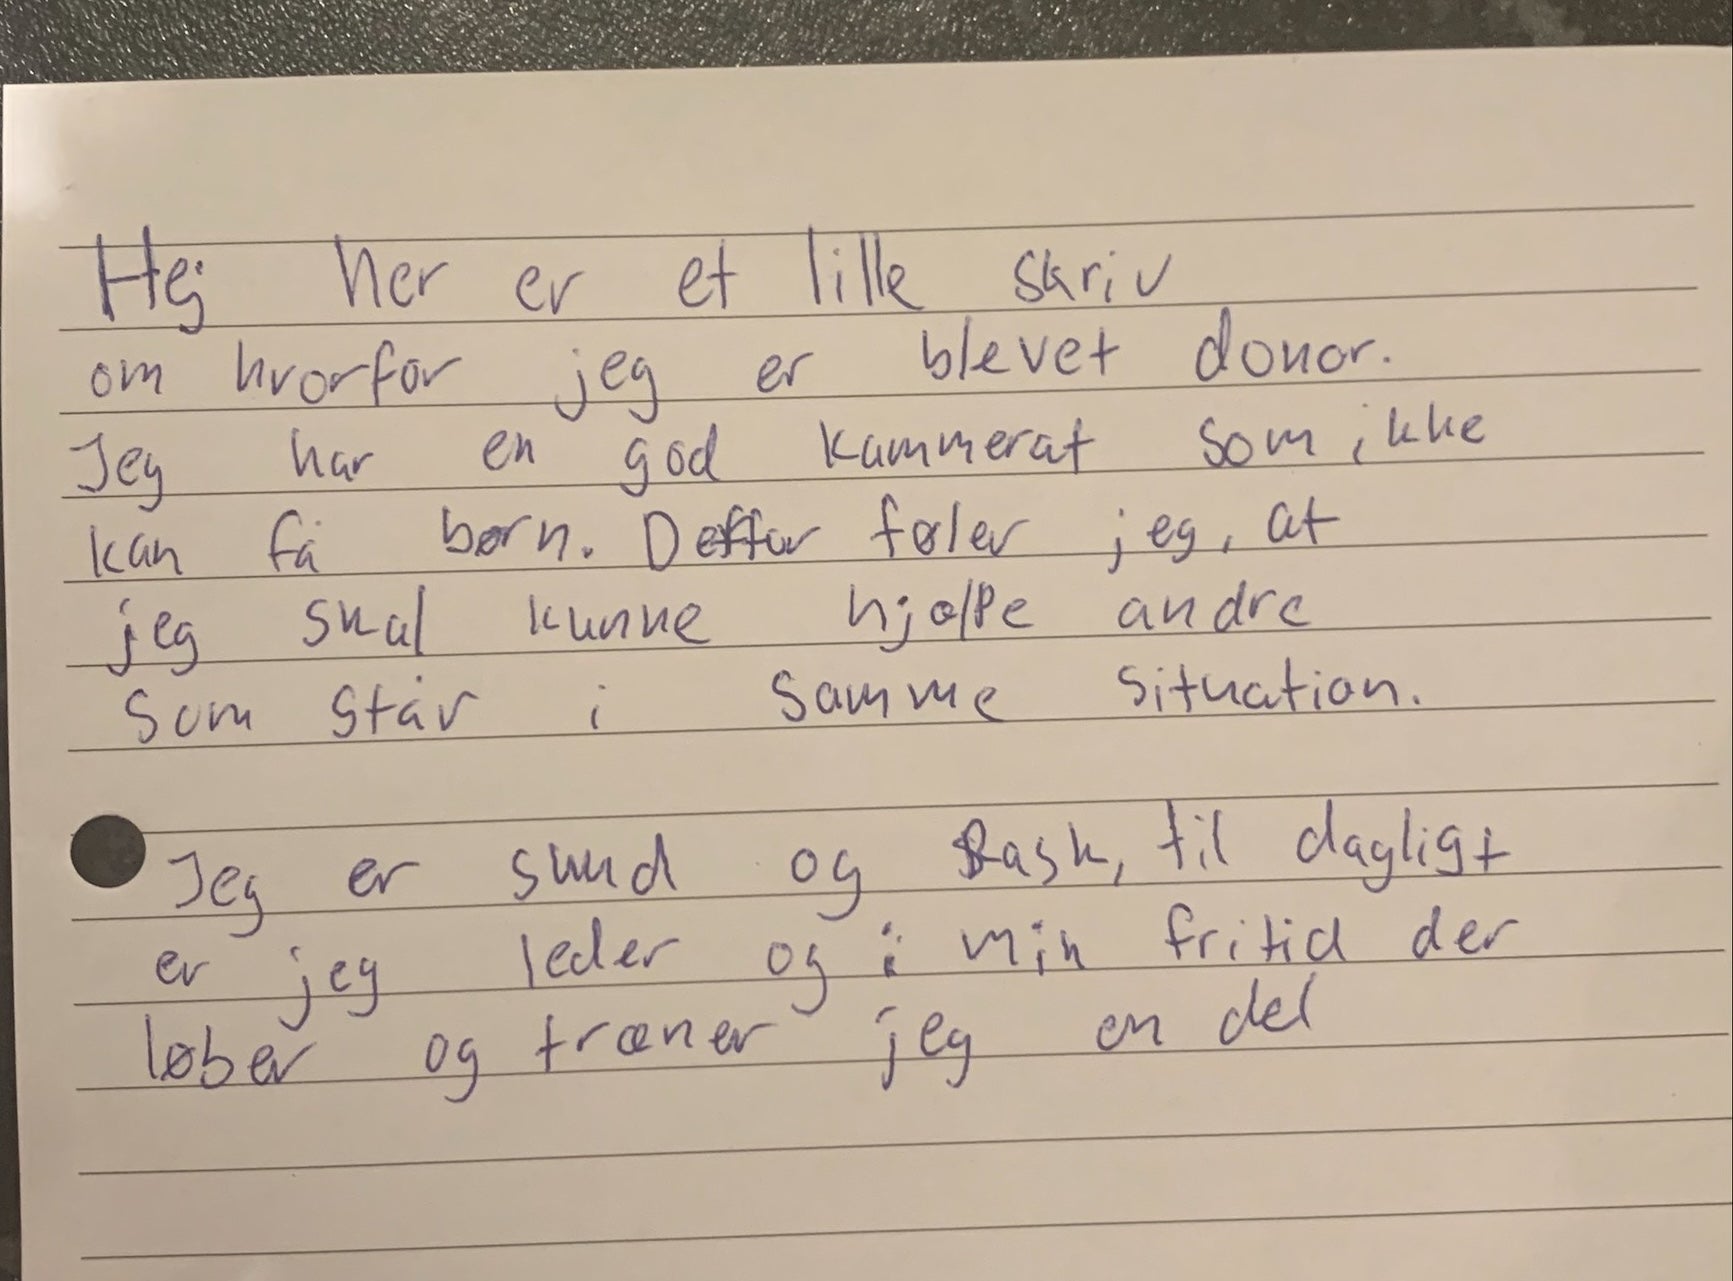 Hej her er et lille skriv
om hvorfor jeg er blevet donor.
Jeg har en god kammerat som ikke
kan få børn. Derfor føler jeg, at
jeg skal kunne hjælpe andre
som står i samme situation.
Jeg er sund og Rask, til dagligt
er jeg leder og i min fritid der
løber og træner jeg en del